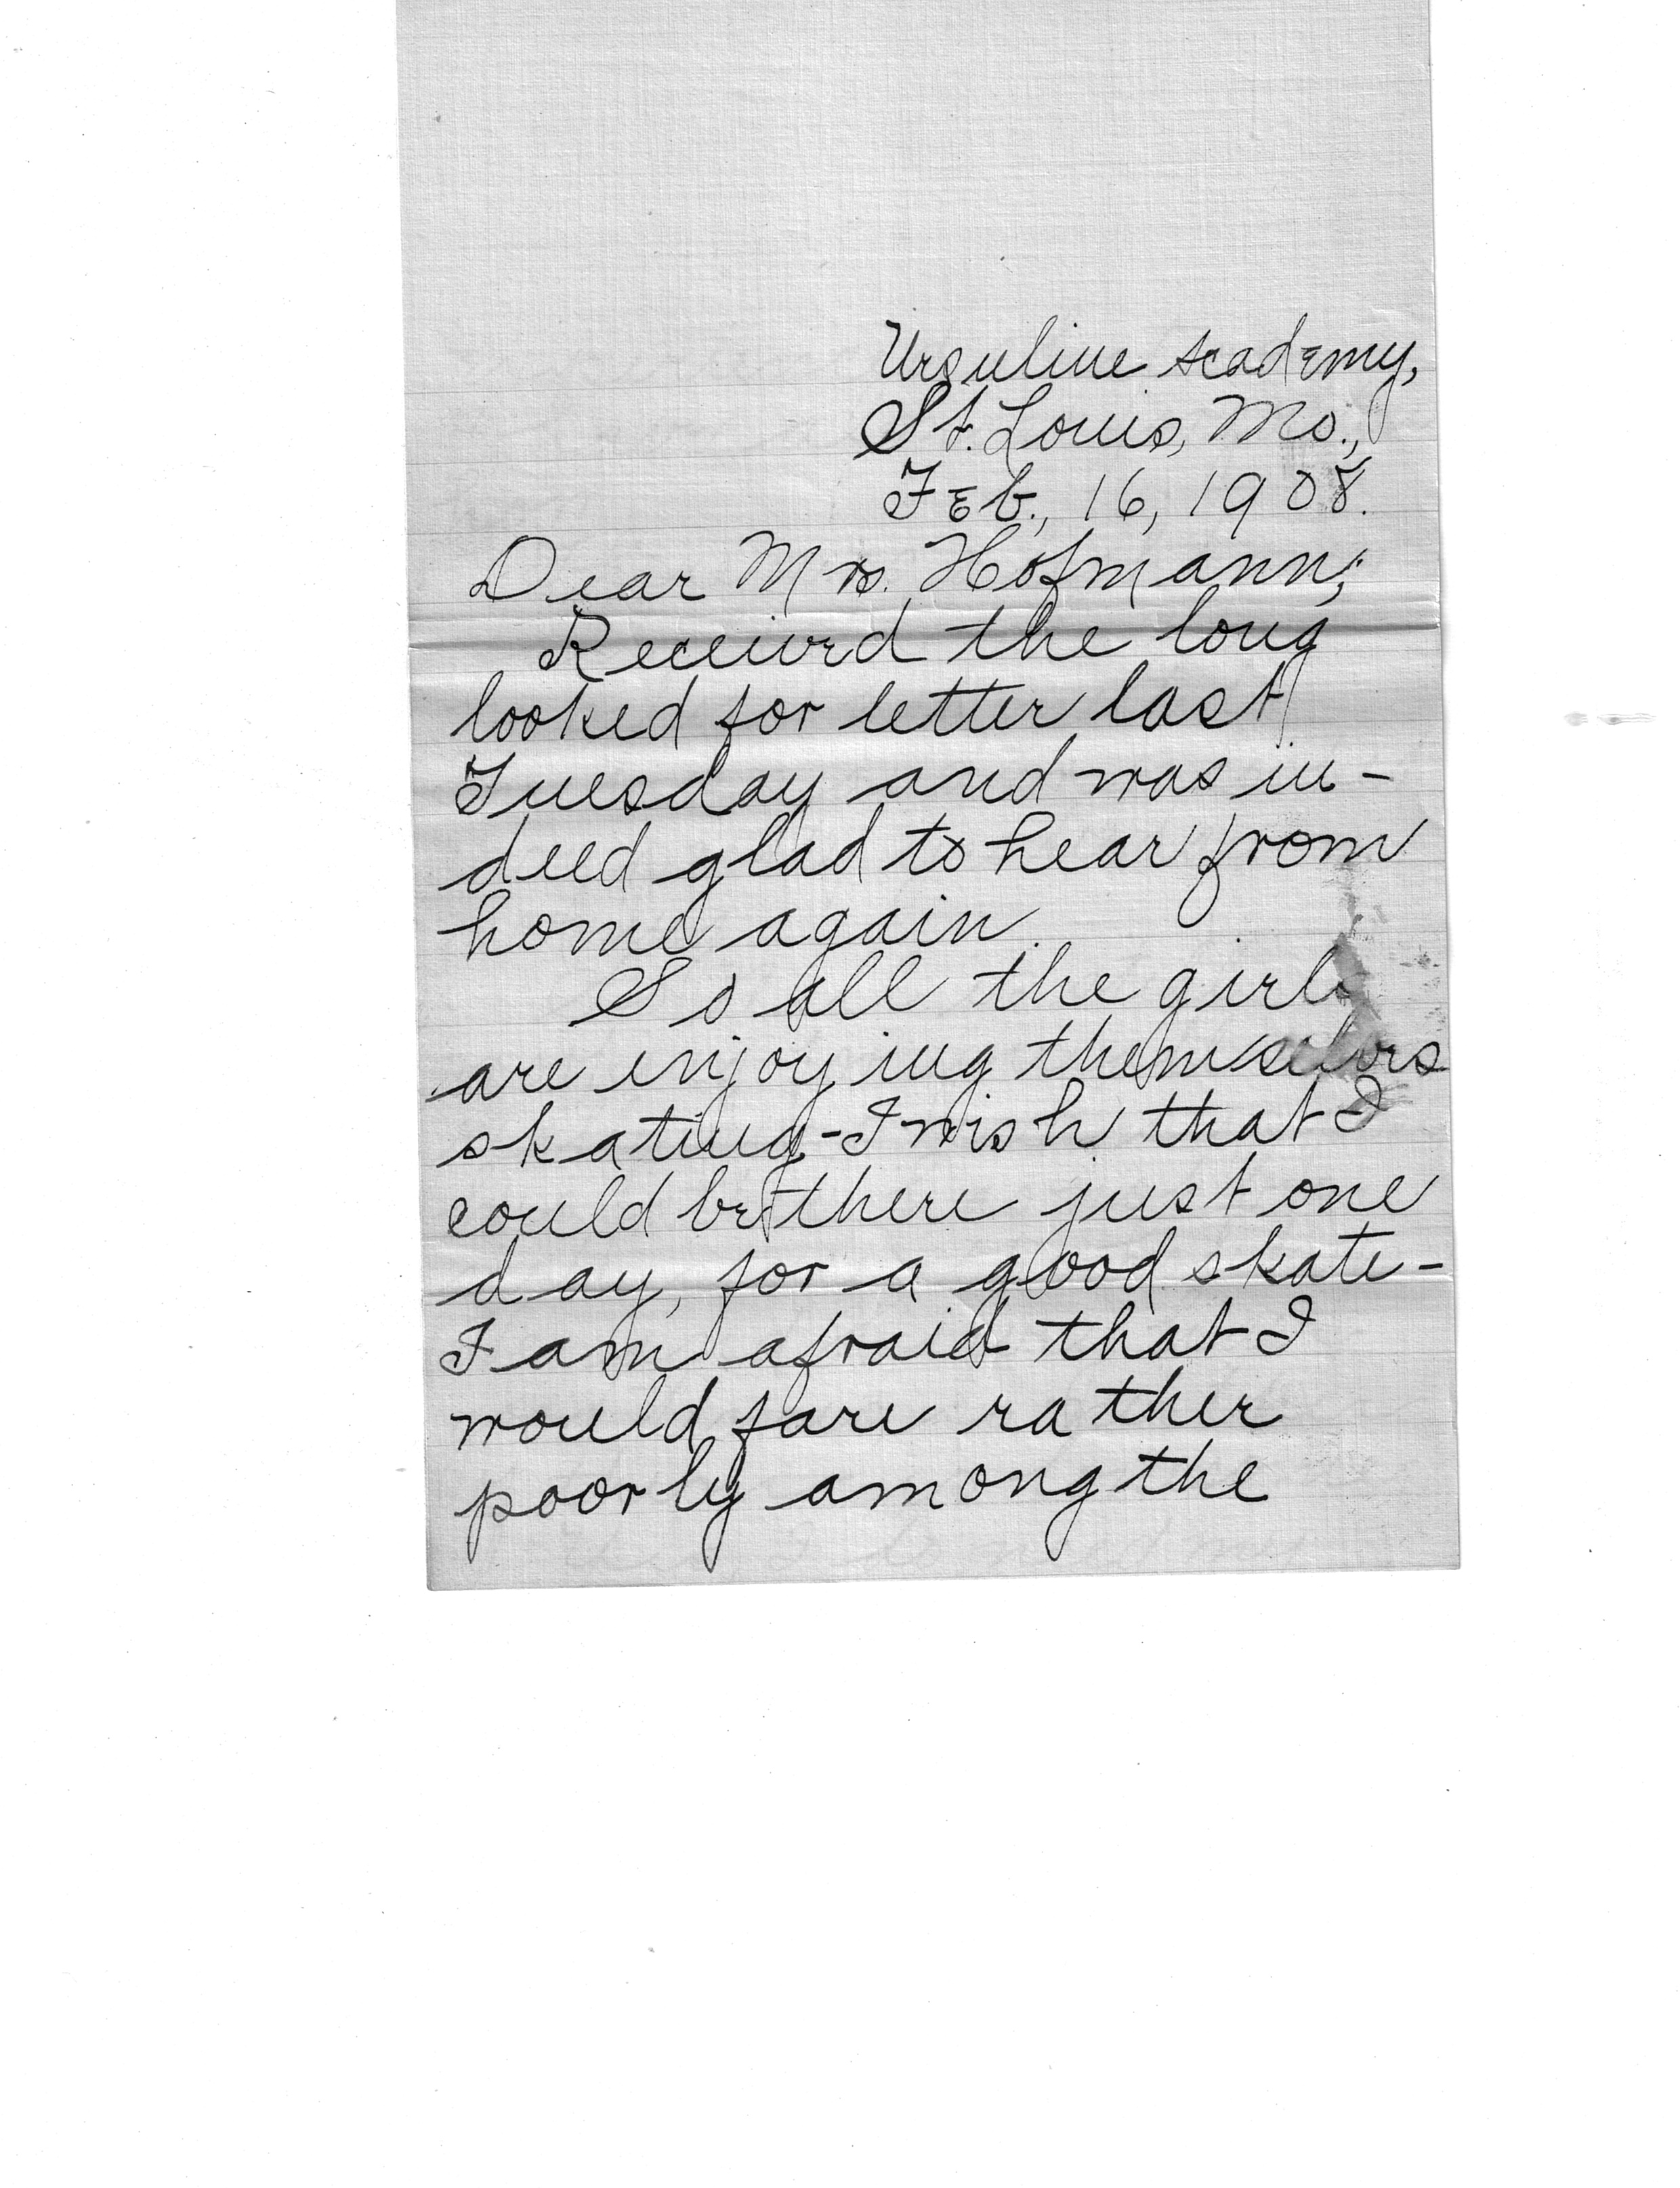 Ursuline Academy,
St. Louis, Mo.,
Feb., 16, 1908.
Dear Mrs. Hofmann;
Received the long
looked for letter last
Tuesday and was in-
deed glad to hear from
home again.
So all the girls
are enjoying themselves
skating-I wish that I
could be there just one
day, for a good skate-
I am afraid that I
would fare rather
poorly among the